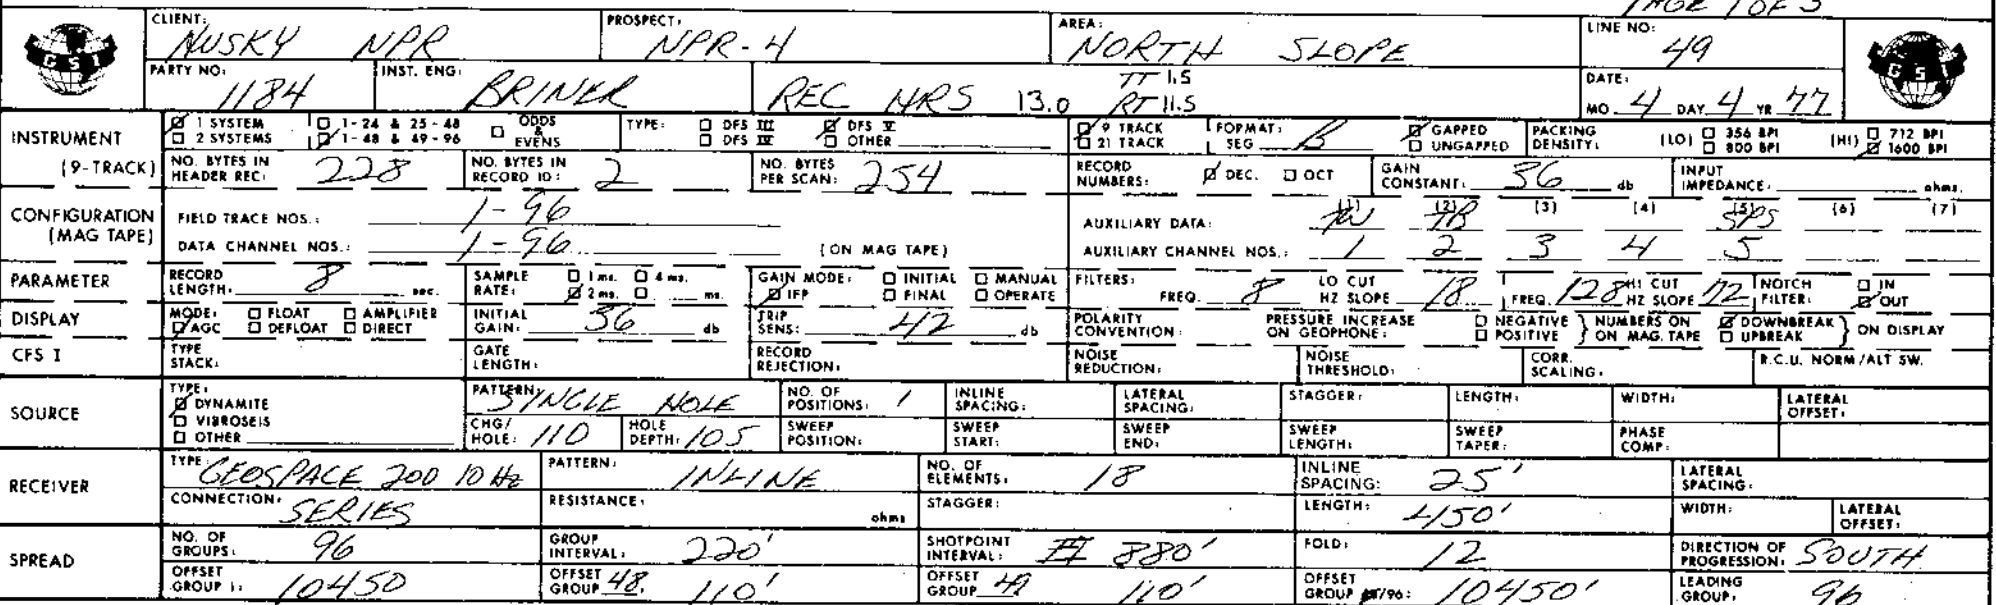 PAGE 1 OF 3
CLIENT: HUSKY NPR PROSPECT: NPR-4 AREA: NORTH SLOPE LINE NO: 49
GSI GSI
PARTY NO: 1184 INST. ENG: BRINER REC HRS 13.0 TT 1.5 RT 11.5 DATE: MO. 4 DAY 4 YR 77
INSTRUMENT 1 SYSTEM 1-24 & 25-48 ODDS & EVENS TYPE: DFS III DFS V 9 TRACK FORMAT: GAPPED PACKING (LO) 356 BPI (HI) 712 BPI
2 SYSTEMS 1-48 & 49-96 DFS IV OTHER 21 TRACK SEG B UNGAPPED DENSITY: 800 BPI 1600 BPI
(9-TRACK) NO. BYTES IN HEADER REC: 228 NO. BYTES IN RECORD ID: 2 NO. BYTES PER SCAN: 254 RECORD NUMBERS: DEC. OCT GAIN CONSTANT: 36 db INPUT IMPEDANCE. ohms.
CONFIGURATION FIELD TRACE NOS.: 1-96 AUXILIARY DATA: (1) (2) TB (3) (4) (5) SPS (6) (7)
(MAG TAPE) DATA CHANNEL NOS.: 1-96 (ON MAG TAPE) AUXILIARY CHANNEL NOS.: 1 2 3 4 5
PARAMETER RECORD LENGTH. 8 sec. SAMPLE RATE: 1 ms. 4 ms. 2 ms. ms. GAIN MODE: INITIAL MANUAL IFP FINAL OPERATE FILTERS: FREQ. 8 LO CUT HZ SLOPE 18 FREQ. 128 HI CUT HZ SLOPE 72 NOTCH FILTER: IN OUT
DISPLAY MODE: FLOAT AMPLIFIER AGC DEFLOAT DIRECT INITIAL GAIN: 36 db TRIP SENS: 42 db POLARITY CONVENTION: PRESSURE INCREASE ON GEOPHONE: NEGATIVE POSITIVE } NUMBERS ON ON MAG. TAPE DOWNBREAK UPBREAK } ON DISPLAY
CFS I TYPE STACK: GATE LENGTH: RECORD REJECTION: NOISE REDUCTION: NOISE THRESHOLD: CORR. SCALING: R.C.U. NORM/ALT SW.
SOURCE TYPE: DYNAMITE VIBROSEIS OTHER PATTERN: SINGLE HOLE NO. OF POSITIONS: 1 INLINE SPACING: LATERAL SPACING: STAGGER: LENGTH: WIDTH: LATERAL OFFSET:
CHG/HOLE: 110 HOLE DEPTH: 105 SWEEP POSITION: SWEEP START: SWEEP END: SWEEP LENGTH: SWEEP TAPER: PHASE COMP:
RECEIVER TYPE: GEOSPACE 200 10 Hz PATTERN: INLINE NO. OF ELEMENTS: 18 INLINE SPACING: 25' LATERAL SPACING:
CONNECTION: SERIES RESISTANCE: ohms STAGGER: LENGTH: 450' WIDTH: LATERAL OFFSET:
SPREAD NO. OF GROUPS: 96 GROUP INTERVAL: 220' SHOTPOINT INTERVAL: 880' FOLD: 12 DIRECTION OF PROGRESSION: SOUTH
OFFSET GROUP 1: 10450 OFFSET GROUP 48. 110' OFFSET GROUP 49 110' OFFSET GROUP /96: 10450' LEADING GROUP: 96